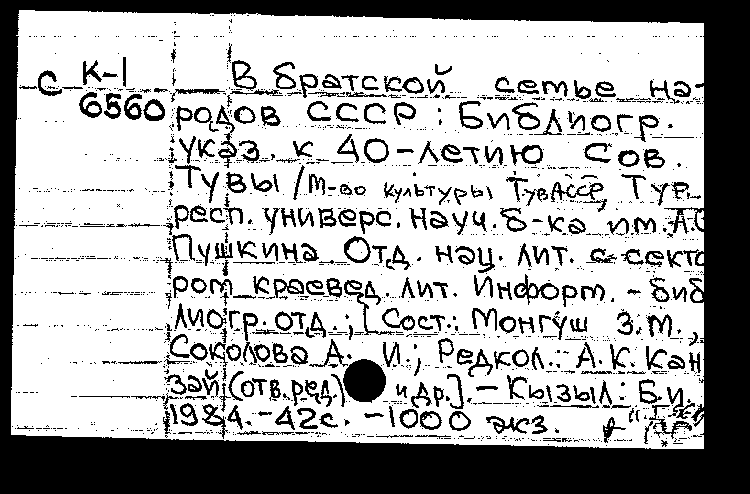 С К-1 В братской семье на-
6560 родов СССР : Библиогр.
указ. к 40-летию Сов.
Тувы / М-во культуры ТувАССР, Тув.
респ. универс. науч. б-ка им. А.С
Пушкина. Отд. нац. лит. с секто
ром краевед. лит. Информ. - биб
лиогр. отд. ; [Сост.: Монгуш З.М.,
Соколова А. И.; Редкол.: А.К. Кан
зай (отв.ред.) и др.]. - Кызыл : Б.и.
1984. - 42с. - 1000 экз.